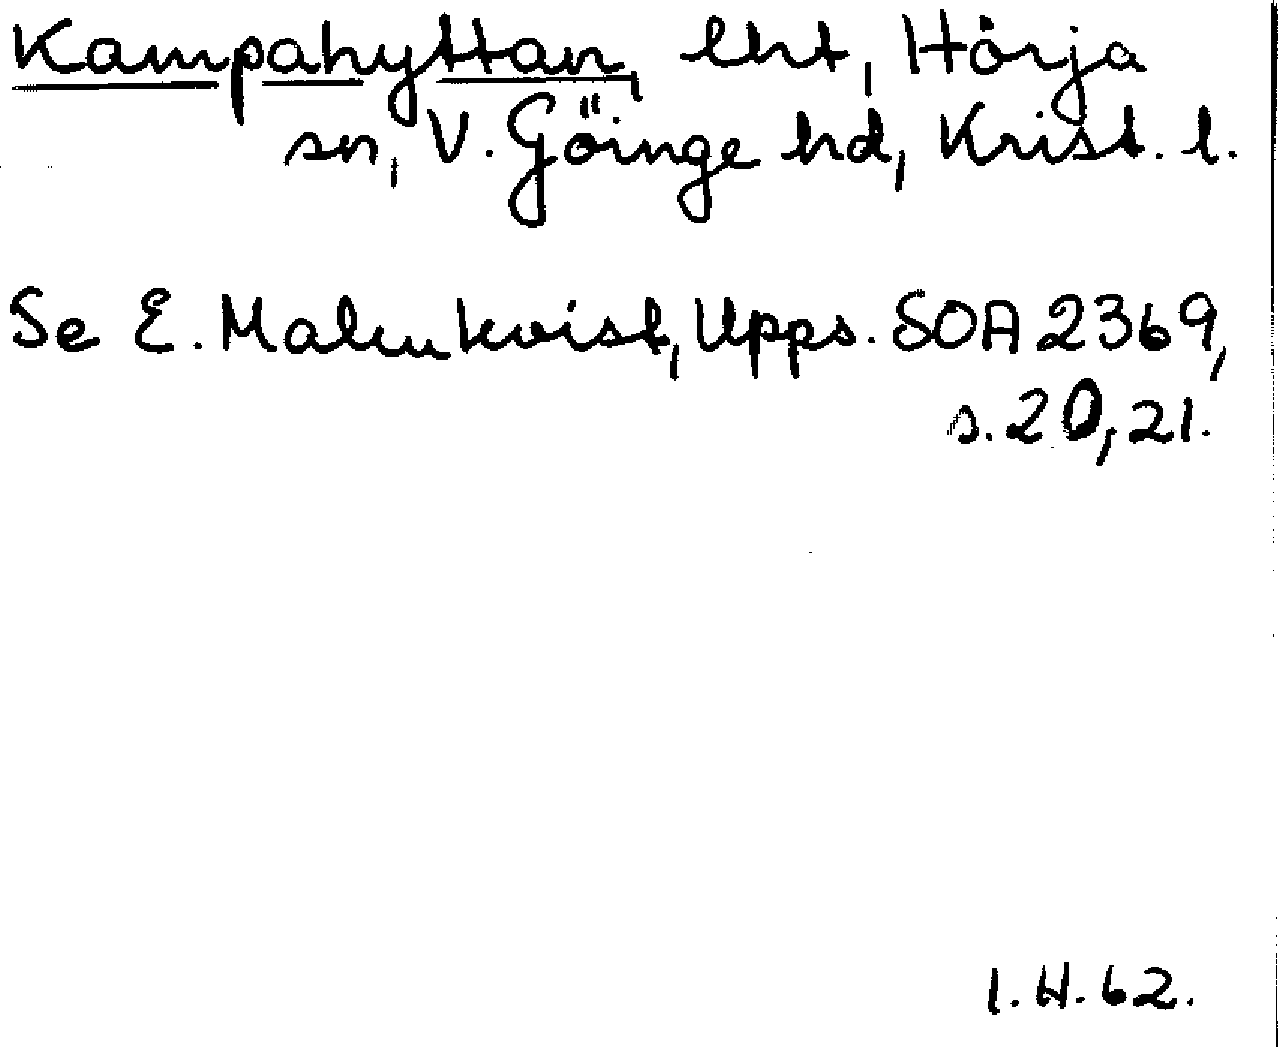 Kampahyttan, lht, Hörja
sn, V. Göinge hd, Krist. l.
Se E. Malmkvist, Upps. SOA 2369,
s. 20, 21.
I. H. 62.